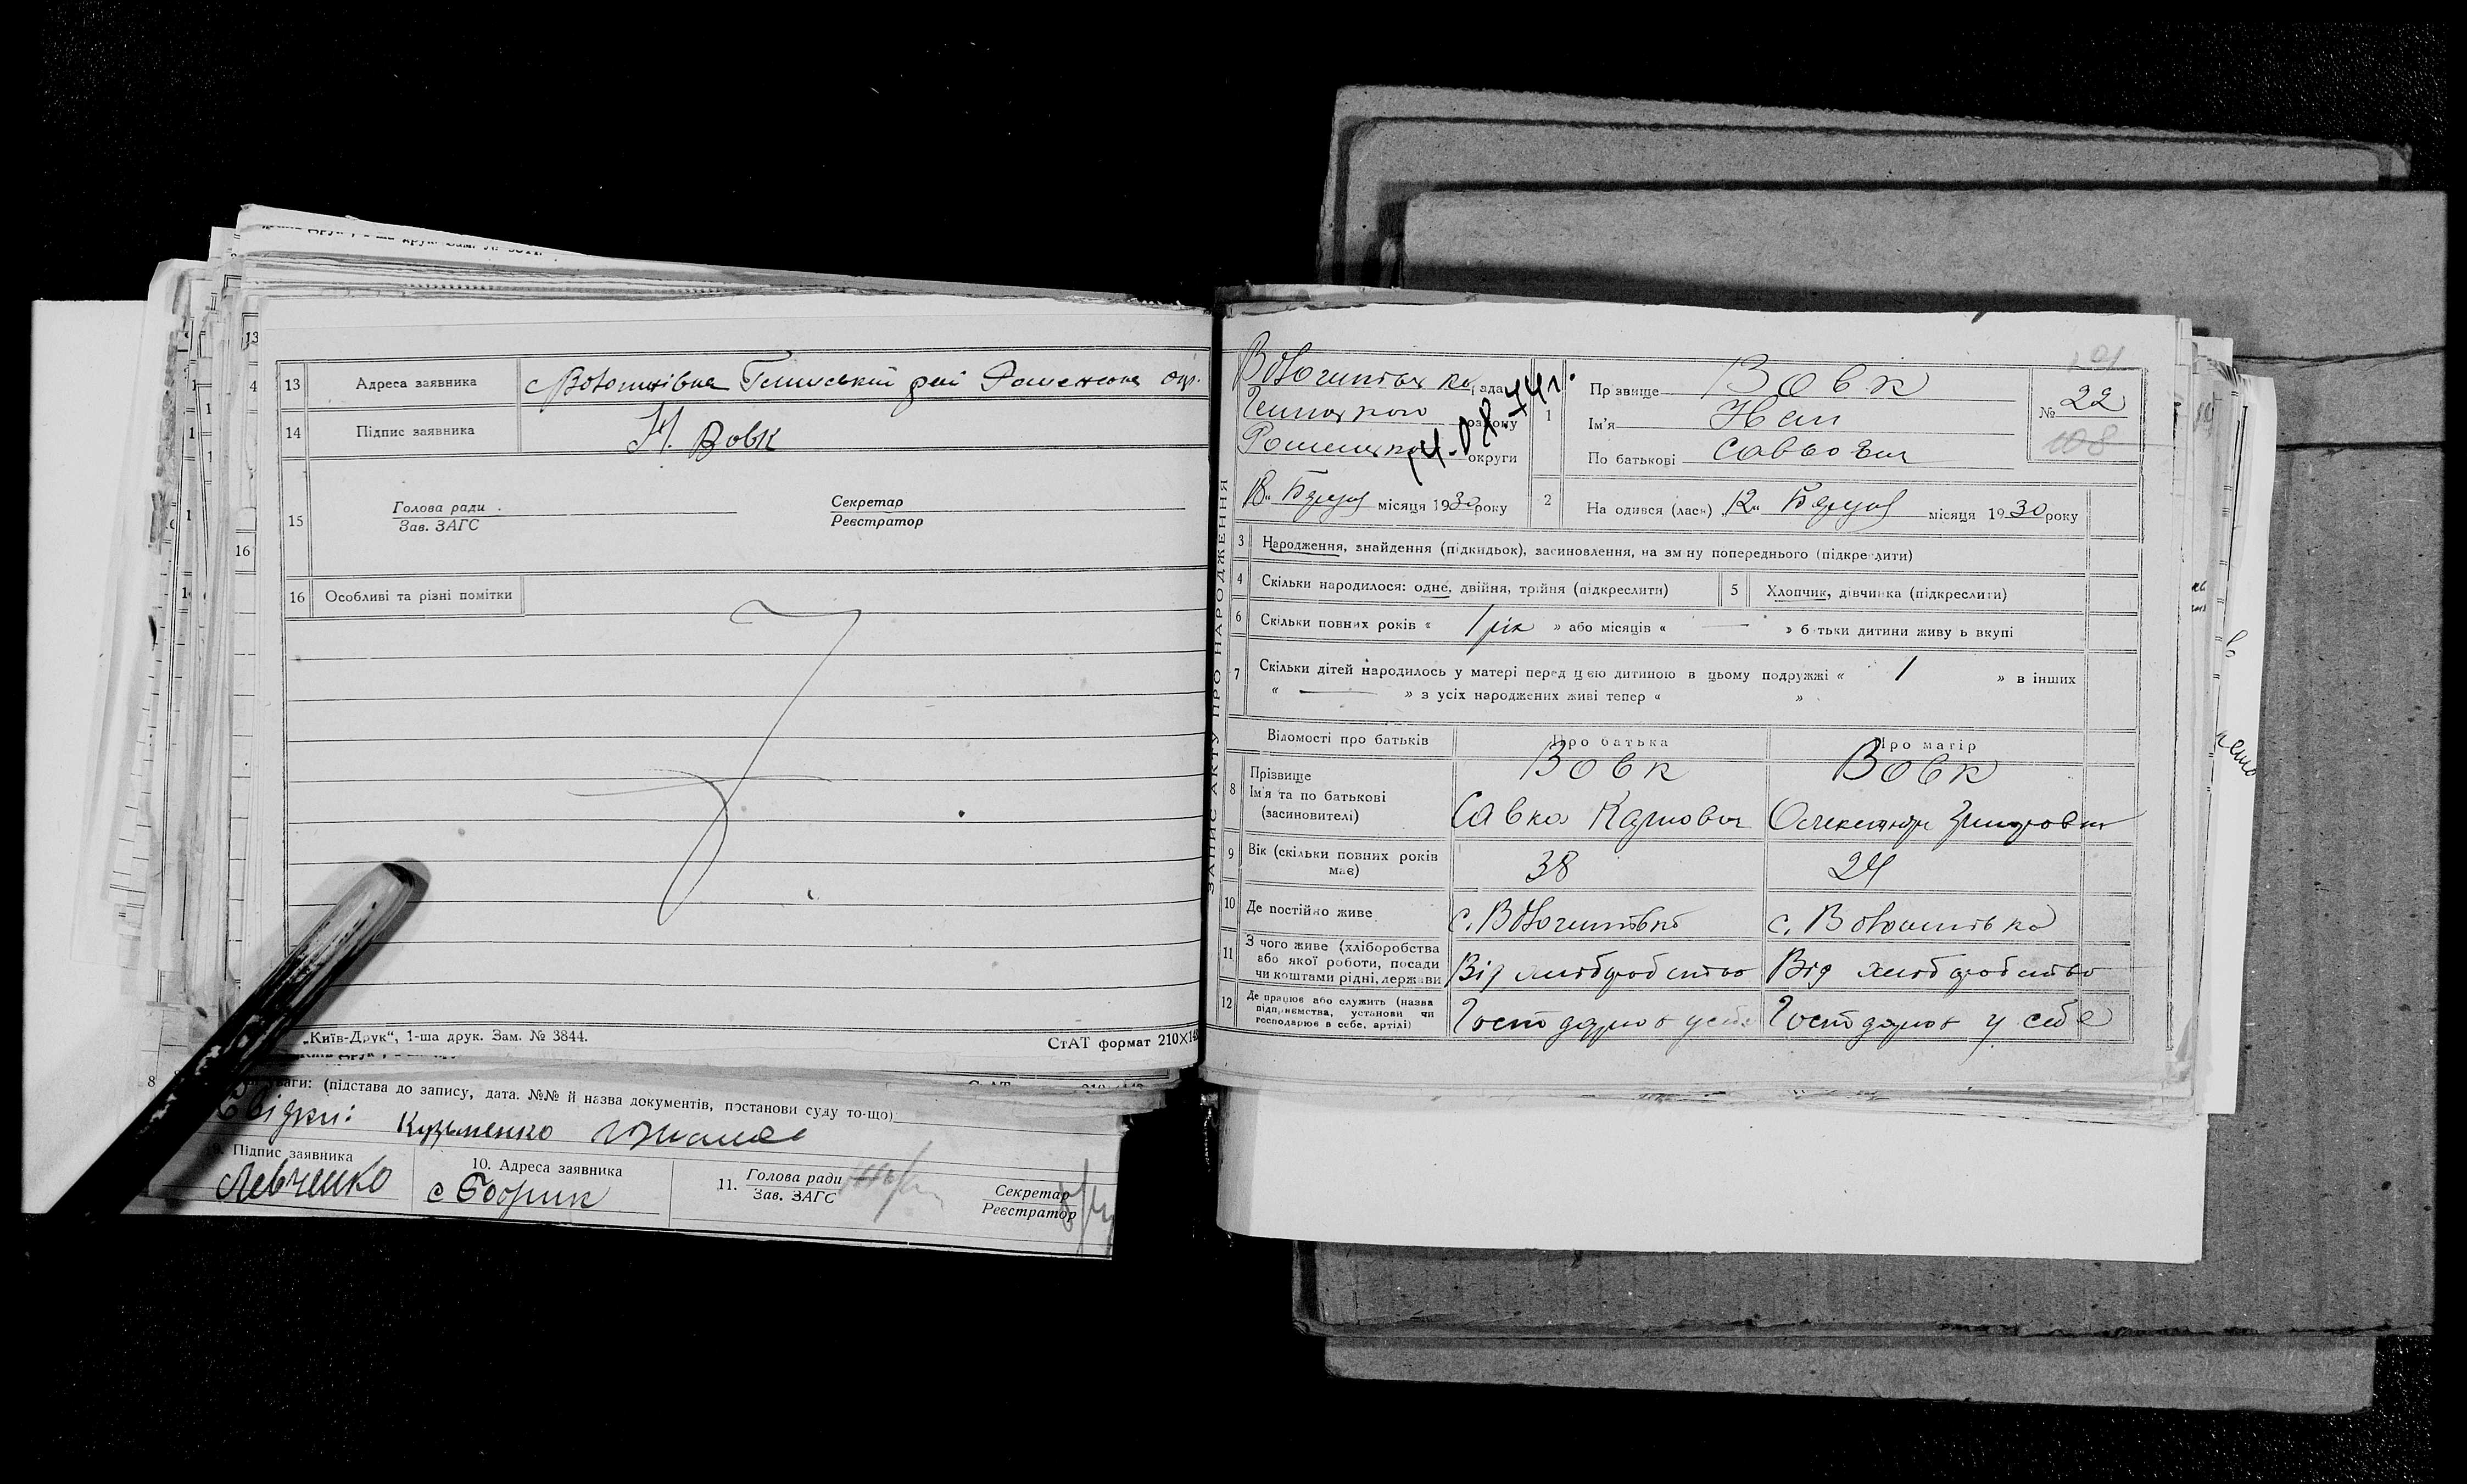 13 Адреса заявника с Волошнівка Глинський рай Роменська окр.
14 Підпис заявника Н. Вовк
15 Голова ради Зав. ЗАГС Секретар Реєстратор
16 Особливі та різні помітки
„Київ-Друк“, 1-ша друк. Зам. № 3844.
СтАТ формат 210×14
ваги: (підстава до запису, дата. №№ й назва документів, постанови суду то-що)
Свідки: Кузьменко
9. Підпис заявника Левченко
10. Адреса заявника с Бобрик
11. Голова ради Зав. ЗАГС
Секретар Реєстратор
ЗАПИС АКТУ ПРО НАРОДЖЕННЯ
рада
району
округи
14.08.44г.
18 місяця 1930 року
1 Прізвище Вовк
Ім'я
По батькові Саввович
№ 22
108
2 На одився (лася) „12“ місяця 1930 року
3 Народження, знайдення (підкидьок), засиновлення, на зміну попереднього (підкреслити)
4 Скільки народилося: одне, двійня, трійня (підкреслити)
5 Хлопчик, дівчинка (підкреслити)
6 Скільки повних років « 1 рік » або місяців « — » батьки дитини живуть вкупі
7 Скільки дітей народилось у матері перед цією дитиною в цьому подружжі « 1 » в інших
« — » з усіх народжених живі тепер « »
Відомості про батьків Про батька Про матір
8 Прізвище Вовк Вовк
Ім'я та по батькові (засиновителі) Савка Карпович Олександра
9 Вік (скільки повних років має) 38 24
10 Де постійно живе с. Волошнівка с. Волошнівка
11 З чого живе (хліборобства або якої роботи, посади чи коштами рідні, держави Від хліборобства Від хліборобства
12 Де працює або служить (назва підприємства, установи чи господарює в себе, артілі) Господарює у себе Господарює у себе